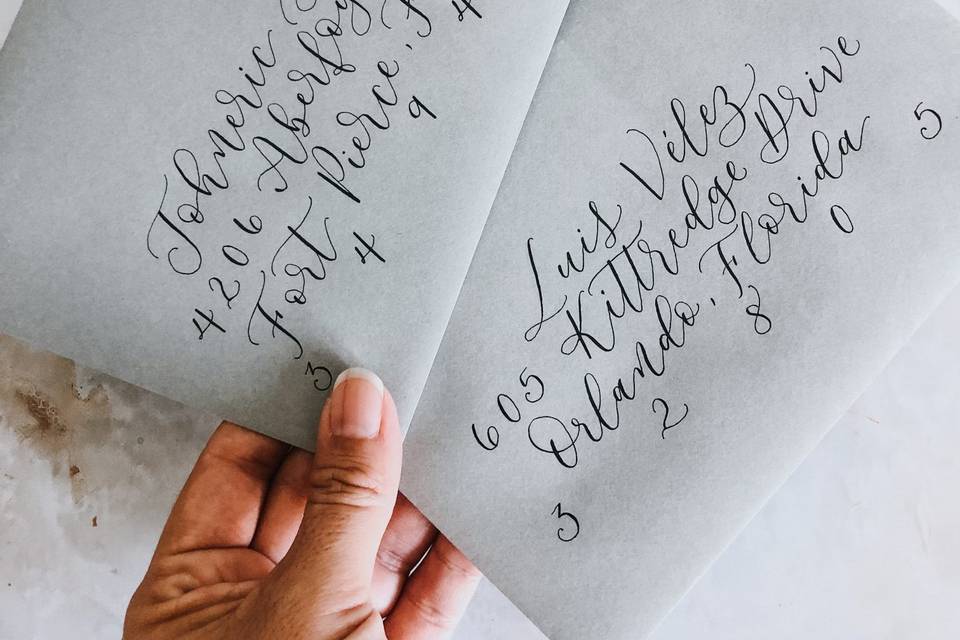 Johmeric
4206 Aberfoy
Fort Pierce, F
3 4 9 4
Luis Vélez
605 Kittredge Drive
Orlando, Florida
3 2 8 0 5